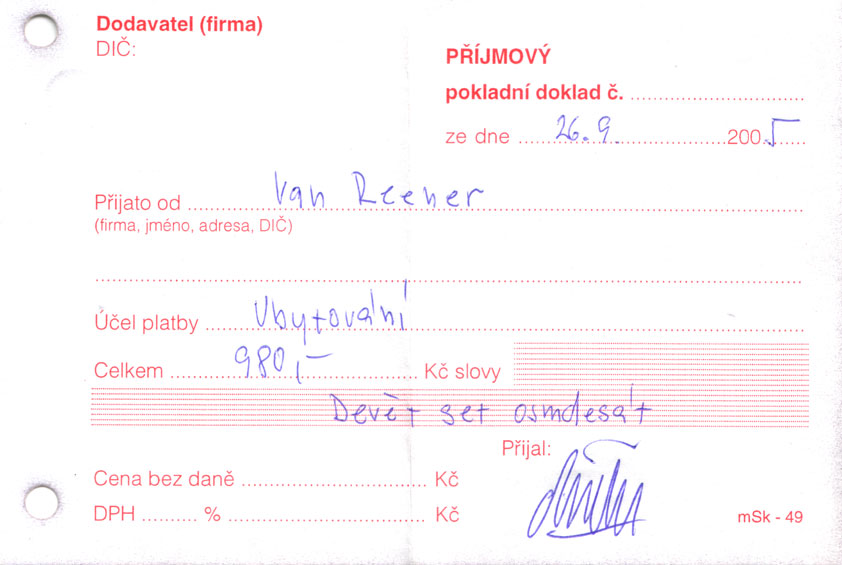 Dodavatel (firma)
DIČ:
PŘÍJMOVÝ
pokladní doklad č. ........................
ze dne 26.9. 2005
Přijato od Van Reener
(firma, jméno, adresa, DIČ)
Účel platby Ubytování
Celkem 980,– Kč slovy
Devět set osmdesát
Přijal:
Cena bez daně ........................ Kč
DPH ......... % ........................ Kč
mSk - 49